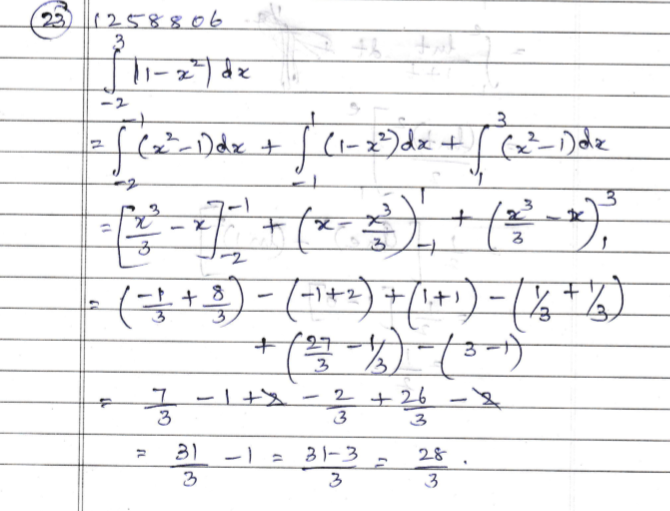 23 1258806
∫_{-2}^{3} |1-x²| dx
= ∫_{-2}^{-1} (x²-1)dx + ∫_{-1}^{1} (1-x²)dx + ∫_{1}^{3} (x²-1)dx
= [x³/3 - x]_{-2}^{-1} + (x - x³/3)_{-1}^{1} + (x³/3 - x)_{1}^{3}
= (-1/3 + 8/3) - (-1+2) + (1+1) - (1/3 + 1/3)
+ (27/3 - 1/3) - (3-1)
= 7/3 - 1 + 2 - 2/3 + 26/3 - 2
= 31/3 - 1 = 31-3/3 = 28/3 .